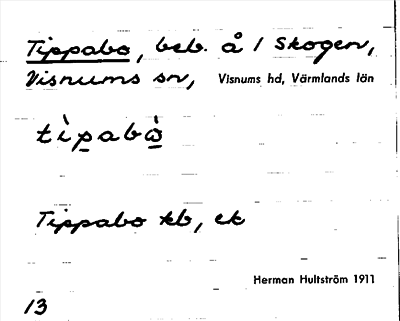 Tippabo, beb. å 1 Skogen,
Visnums sn, Visnums hd, Värmlands län
tìpabò
Tippabo kb, ek
Herman Hultström 1911
13